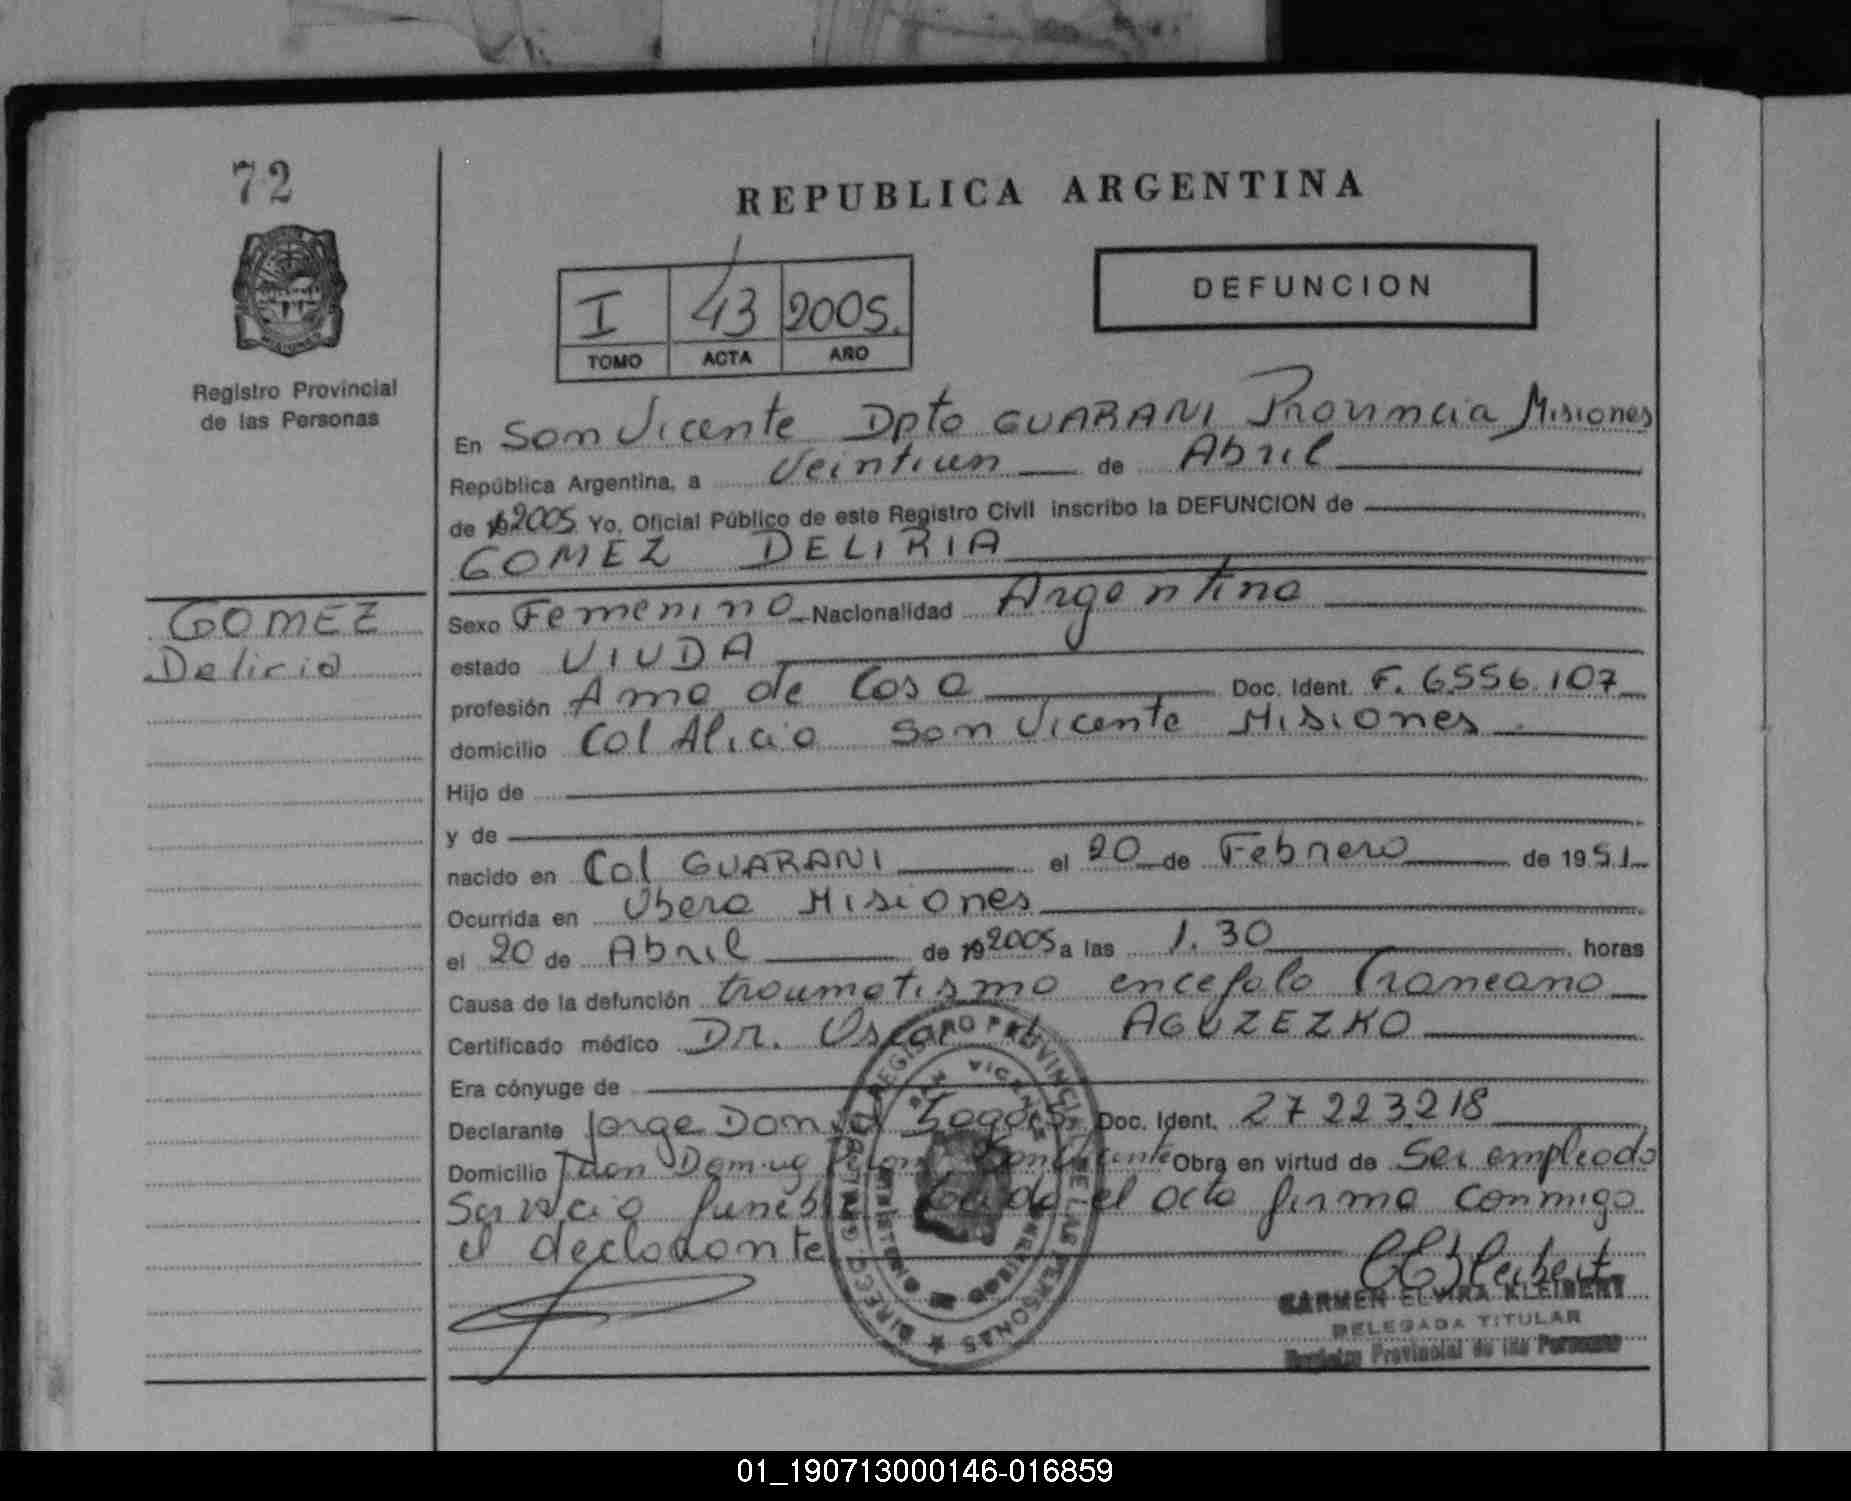 72
REPUBLICA ARGENTINA
I 43 2005.
TOMO ACTA AÑO
DEFUNCION
Registro Provincial
de las Personas
En San Vicente Dpto GUARANI Provincia Misiones
República Argentina, a Veintiun de Abril
de 19 2005 Yo, Oficial Público de este Registro Civil inscribo la DEFUNCION de
GOMEZ DELIRIA
GOMEZ
Deliria
Sexo Femenino Nacionalidad Argentina
estado VIUDA
profesión Ama de Casa Doc. Ident. F. 6556.107
domicilio Col Alicia San Vicente Misiones
Hijo de
y de
nacido en Col GUARANI el 20 de Febrero de 1951
Ocurrida en Obera Misiones
el 20 de Abril de 19 2005 a las 1.30 horas
Causa de la defunción traumatismo encefalo Craneano
Certificado médico Dr. Oscar AGUZEZKO
Era cónyuge de
Declarante Jorge Daniel Doc. Ident. 27 223.218
Domicilio San Vicente Obra en virtud de Ser empleado
Servicio funebre Leida el acta firma conmigo
el declarante
CARMEN ELVIRA KLEIBERT
DELEGADA TITULAR
Registro Provincial de las Personas
01_190713000146-016859